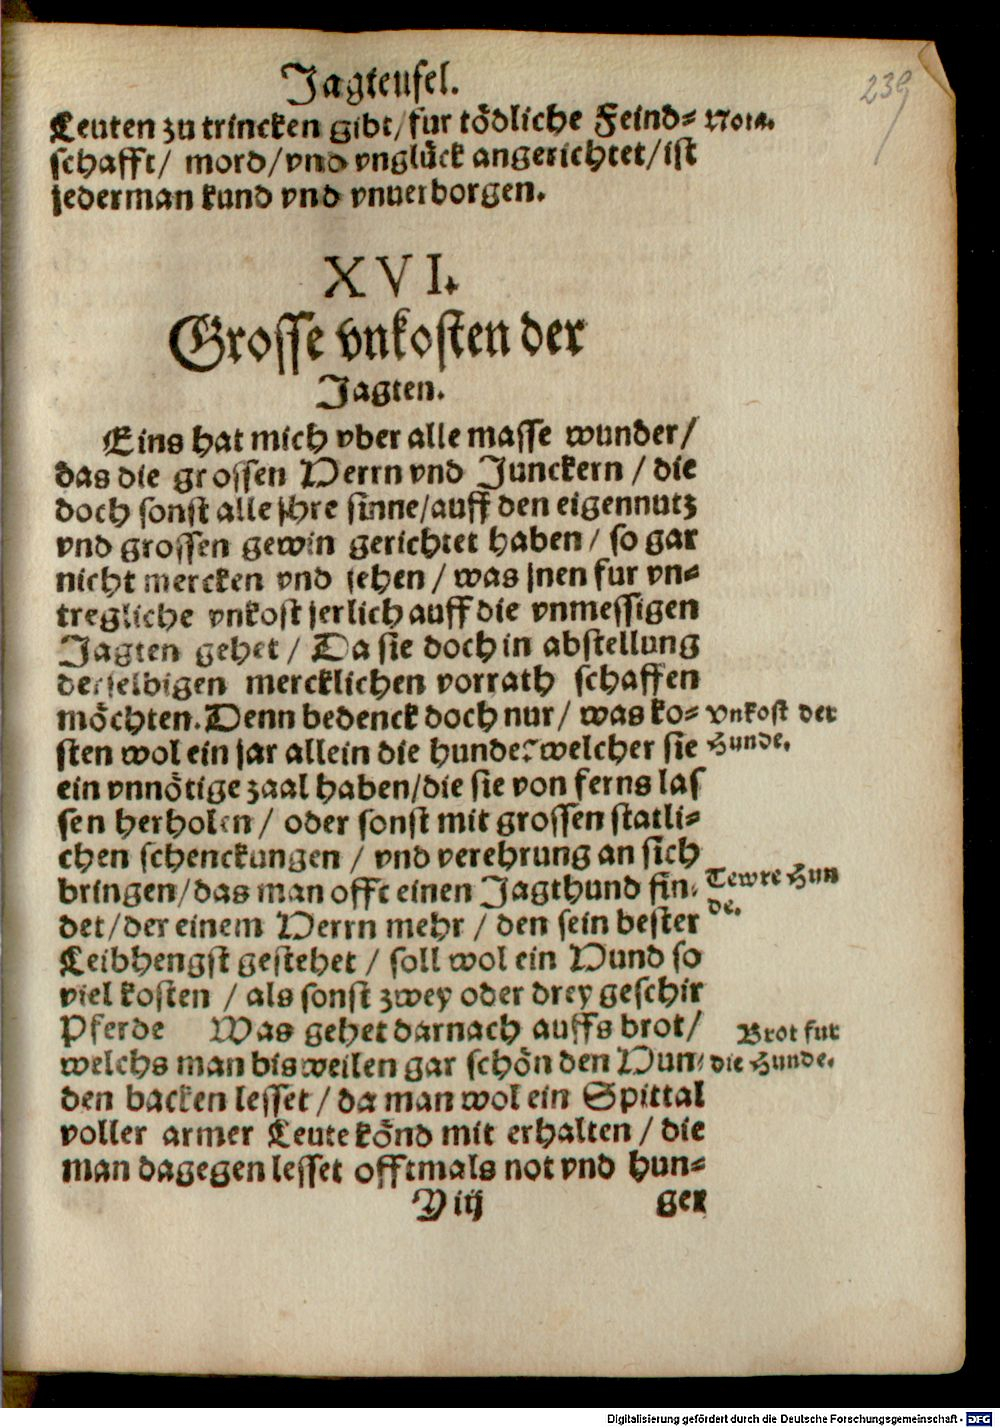 Jagteufel.
239
Leuten zu trincken gibt/fur tödliche Feind-
Nota.
schafft/ mord/vnd vnglück angerichtet/ist
jederman kund vnd vnuerborgen.
XVI.
Grosse vnkosten der
Jagten.
Eins hat mich vber alle masse wunder/
das die grossen Herrn vnd Junckern / die
doch sonst alle jhre sinne/auff den eigennutz
vnd grossen gewin gerichtet haben / so gar
nicht mercken vnd sehen / was jnen fur vn-
tregliche vnkost jerlich auff die vnmessigen
Jagten gehet / Da sie doch in abstellung
derselbigen mercklichen vorrath schaffen
möchten. Denn bedenck doch nur/ was ko-
vnkost der
sten wol ein jar allein die hunde? welcher sie
Hunde.
ein vnnötige zaal haben/die sie von ferns las
sen herholen / oder sonst mit grossen statli-
chen schenckungen / vnd verehrung an sich
bringen/das man offt einen Jagthund fin-
Tewre Hun
det/der einem Herrn mehr / den sein bester
de.
Leibhengst gestehet / soll wol ein Hund so
viel kosten / als sonst zwey oder drey geschir
Pferde Was gehet darnach auffs brot/
Brot fur
welchs man bisweilen gar schön den Hun-
die Hunde.
den backen lesset / da man wol ein Spittal
voller armer Leute könd mit erhalten / die
man dagegen lesset offtmals not vnd hun-
Y iij
ger
Digitalisierung gefördert durch die Deutsche Forschungsgemeinschaft - DFG